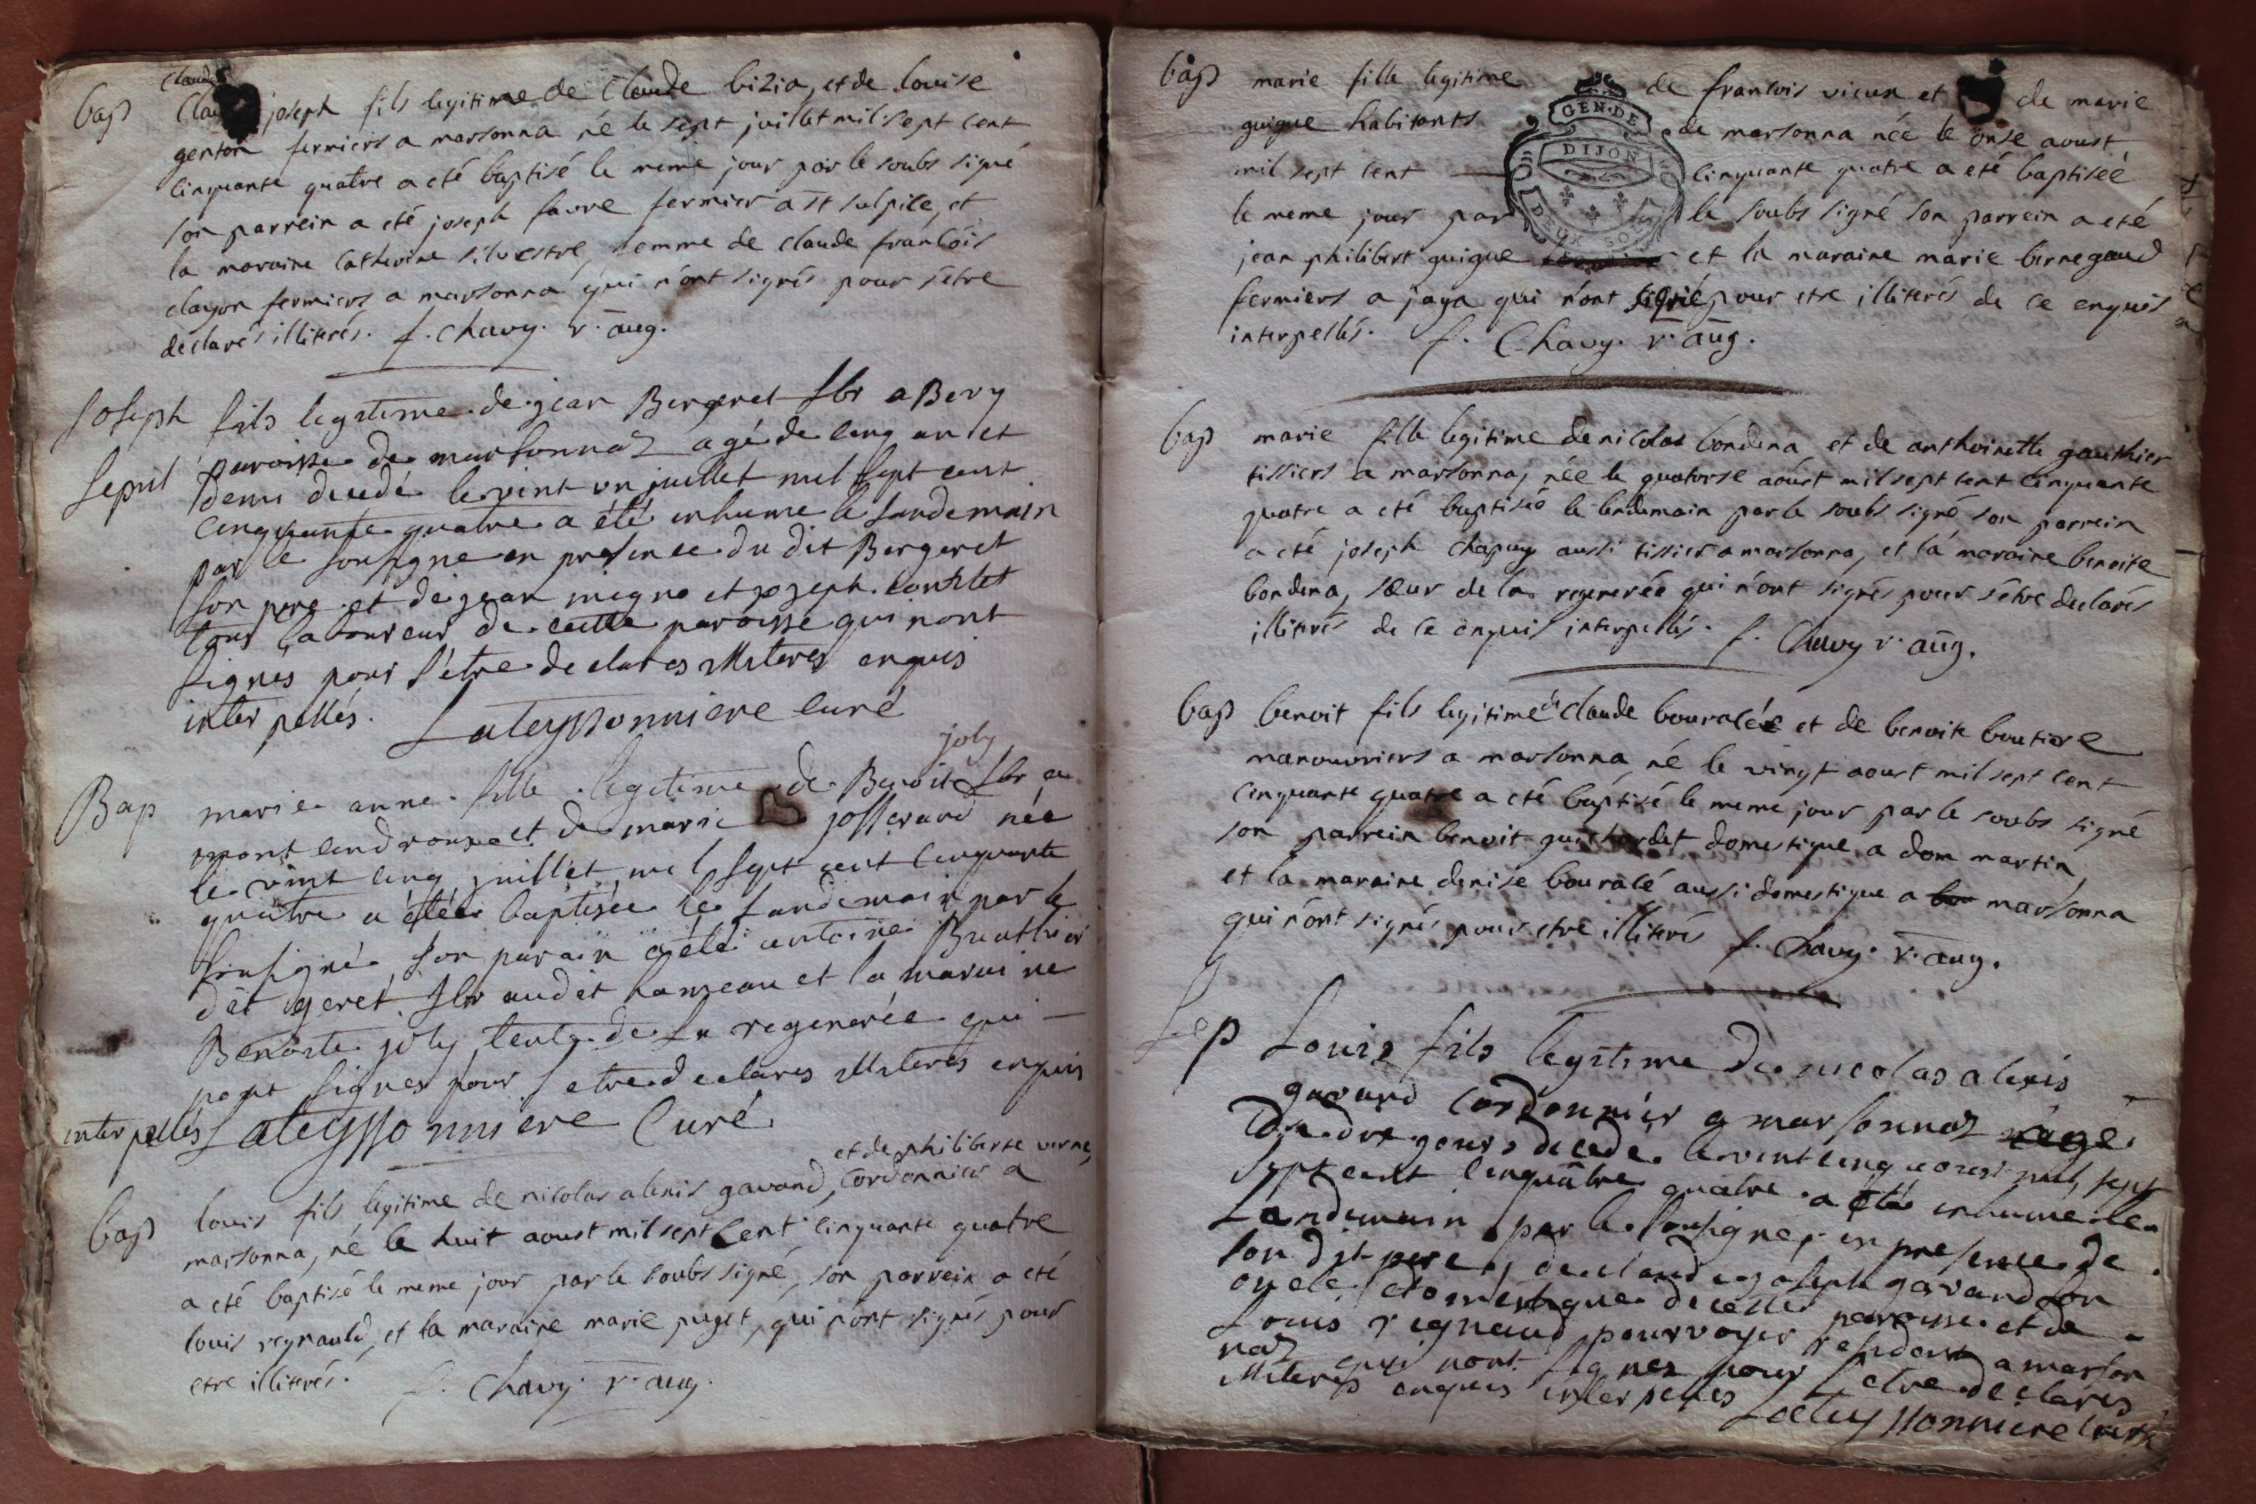 bap
claude
Claude joseph fils legitime de Claude bizia, et de louise
genton fermiers a marsonna né le sept juillet mil sept cent
cinquante quatre a eté baptisé le meme jour par le soubs signé
son parrein a eté joseph favre fermier a st sulpice, et
la maraine catherine silvestre, femme de claude francois
clayon fermiers a marsonna qui n'ont signés pour s'etre
declarés illiterés. f. chavy. r. aug.
Joseph fils legitime de jean Bergeret lbr a Bery
sepul paroisse de marsonnaz agé de cinq an et
demi decedé le vint un juillet mil sept cent
cinquante quatre a été inhume le landemain
par le sousigne en presence du dit Bergeret
son pere et de jean migno et joseph
tous laboureur de cette paroisse qui nont
signés pour s'etre declares illiteres enquis
interpellés. Lateyssonniere curé
joly
Bap marie anne fille legitime de Benoit lbr au
mont cindroux et de marie josserand née
le vint cinq juillet mil sept cent cinquante
quatre a étée baptisée le landemain par le
sousigné, son parain a été antoine Breuthier
dit geret lbr au dit hameau et la maraine
Benoite joly tente de la regenerée qui
nont signes pour s'etre declares illiteres enquis
interpellés Lateyssonniere Curé
et de philiberte verne,
bap louis fils legitime de nicolas alexis gavand, cordonnier a
marsonna, né le huit aoust mil sept cent cinquante quatre
a eté baptisé le meme jour par le soubs signé, son parrein a eté
louis reynauld, et la maraine marie puget, qui n'ont signés pour
etre illiterés. f. chavy. r. aug.
bap marie fille legitime de francois vieux et de marie
guigue habitants de marsonna née le onse aoust
mil sept cent cinquante quatre a eté baptiseé
le meme jour par le soubs signé son parrein a eté
jean philibert guigue et la maraine marie bernegaud
fermiers a jaya qui n'ont signé pour etre illiterés de ce enquis
interpellés. f. Chavy. r. aug.
GEN. DE
DIJON
DEUX SOLS
bap marie fille legitime de nicolas bondena et de anthoinette gauthier
tissiers a marsonna, née le quatorse aoust mil sept cent cinquante
quatre a eté baptiseé le lendemain par le soubs signé son parrein
a eté joseph chapuy aussi tissier a marsonna, et la maraine benoite
bondena, sœur de la regenereé qui n'ont signés pour s'etre declarés
illiterés de ce enquis interpellés. f. Chavy r. aug.
bap benoit fils legitime de claude bouralé et de benoite boutiere
manouvriers a marsonna né le vingt aoust mil sept cent
cinquante quatre a eté baptisé le meme jour par le soubs signé
son parrein benoit guichardet domestique a dom martin,
et la maraine denise bouralé aussi domestique a marsonna
qui n'ont signés pour etre illiterés f. chavy. r. aug.
Sep Louis fils legitime de nicolas alexis
gavand cordonnier a marsonnaz agé
de dix jours decede le vint cinq aoust mil sept
sept cent cinquante quatre a été inhumé le
Landemain par le sousigné, en presence de
son dit pere, de claude joseph gavand son
oncle domestique de cette paroisse et de
Louis regnaud pourvoyer resident a marson
naz qui nont signes pour s'etre declares
illiteres enquis interpelles Lateyssonniere Curé